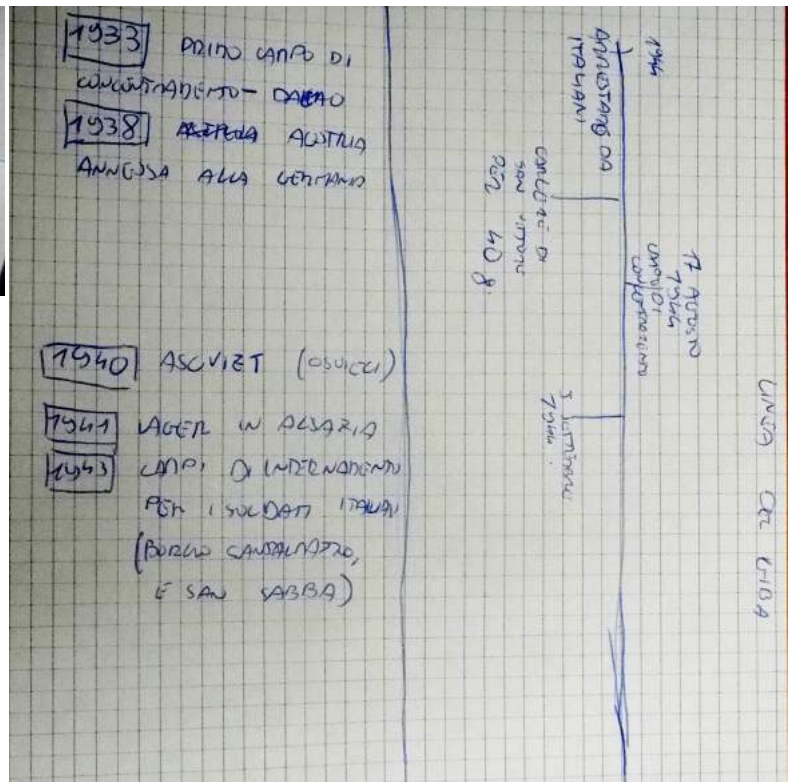 1933 PRIMO CAMPO DI
CONCENTRAMENTO - DACAO
1938 AUSTRIA
ANNESSA ALLA GERMANIA
1940 ASCVIZT (OSVICCI)
1941 LAGER IN ALSAZIA
1943 CAMPI DI INTERNAMENTO
PER I SOLDATI ITALIANI
(BORGO SANDALMAZZO,
E SAN SABBA)
1944
ARRESTATO DA
ITALIANI
CARCERE DI
SAN VITTORE
PER 40 g.
17 AGOSTO
1944
CONCENTRAMENTO
5 SETTEMBRE
1944.
LINEA